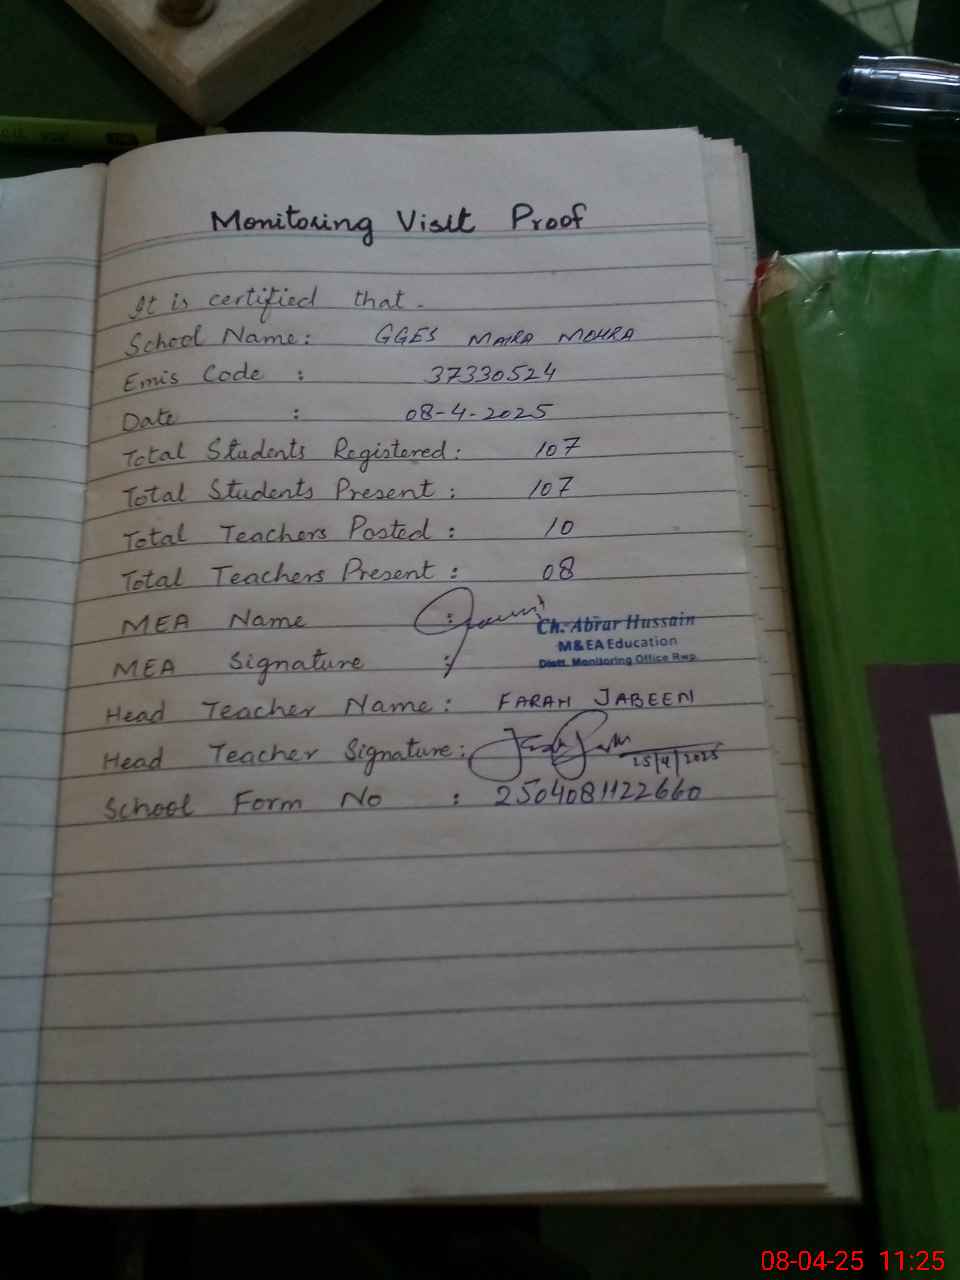 Monitoring Visit Proof
It is certified that.
School Name: GGES MAIRA MOHRA
Emis Code : 37330524
Date : 08-4-2025
Total Students Registered: 107
Total Students Present: 107
Total Teachers Posted: 10
Total Teachers Present: 08
MEA Name :
Ch. Abrar Hussain
M&EA Education
Distt. Monitoring Office Rwp.
MEA Signature :
Head Teacher Name: FARAH JABEEN
Head Teacher Signature:
25/4/2025
School Form No : 2504081122660
08-04-25 11:25